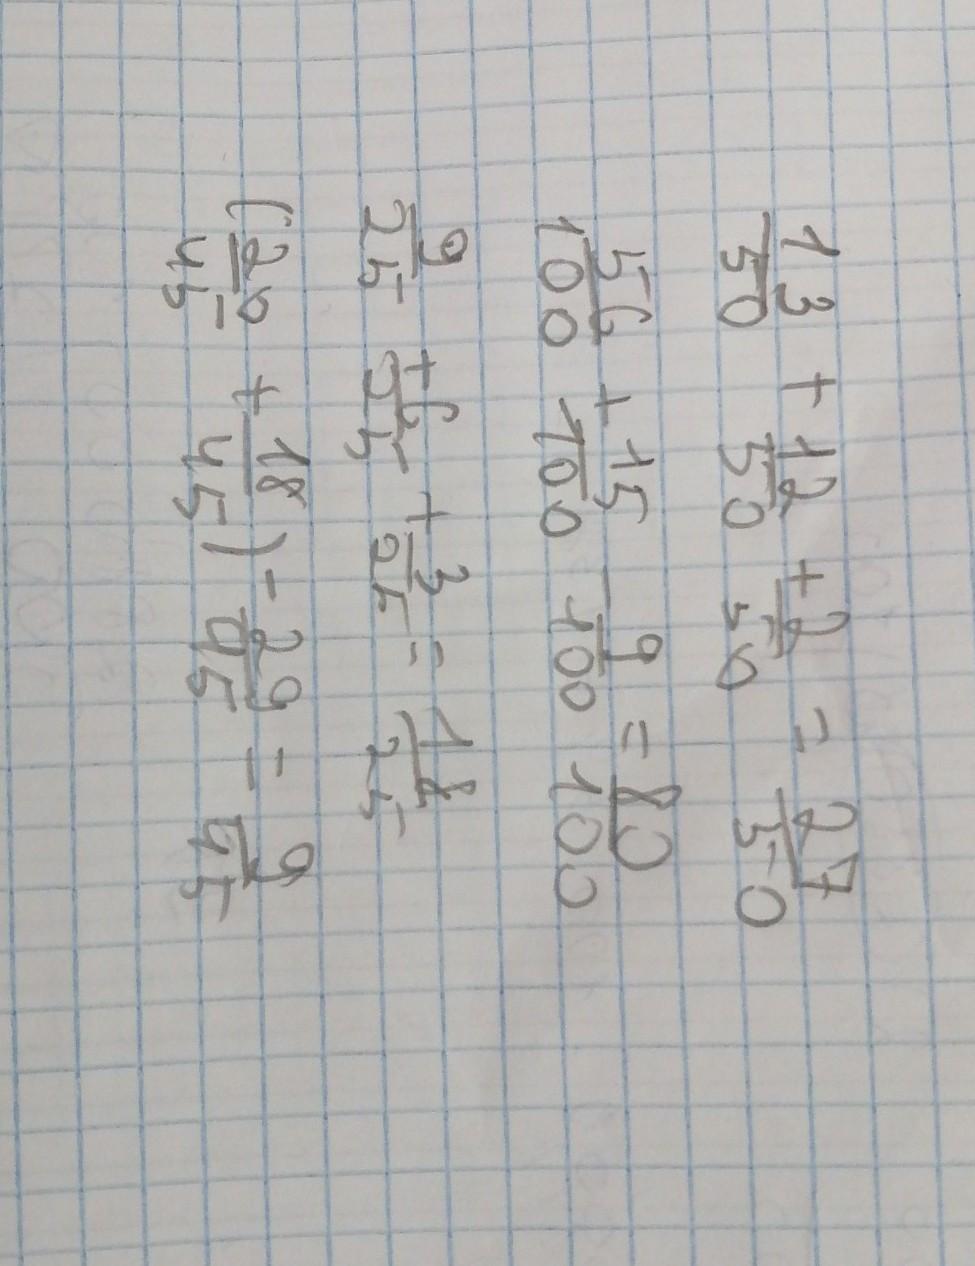 13/50 + 12/50 + 2/50 = 27/50
56/100 + 15/100 - 9/100 = 80/100
9/25 + 6/25 + 3/25 = 18/25
(20/45 + 18/45) - 29/45 = 9/45